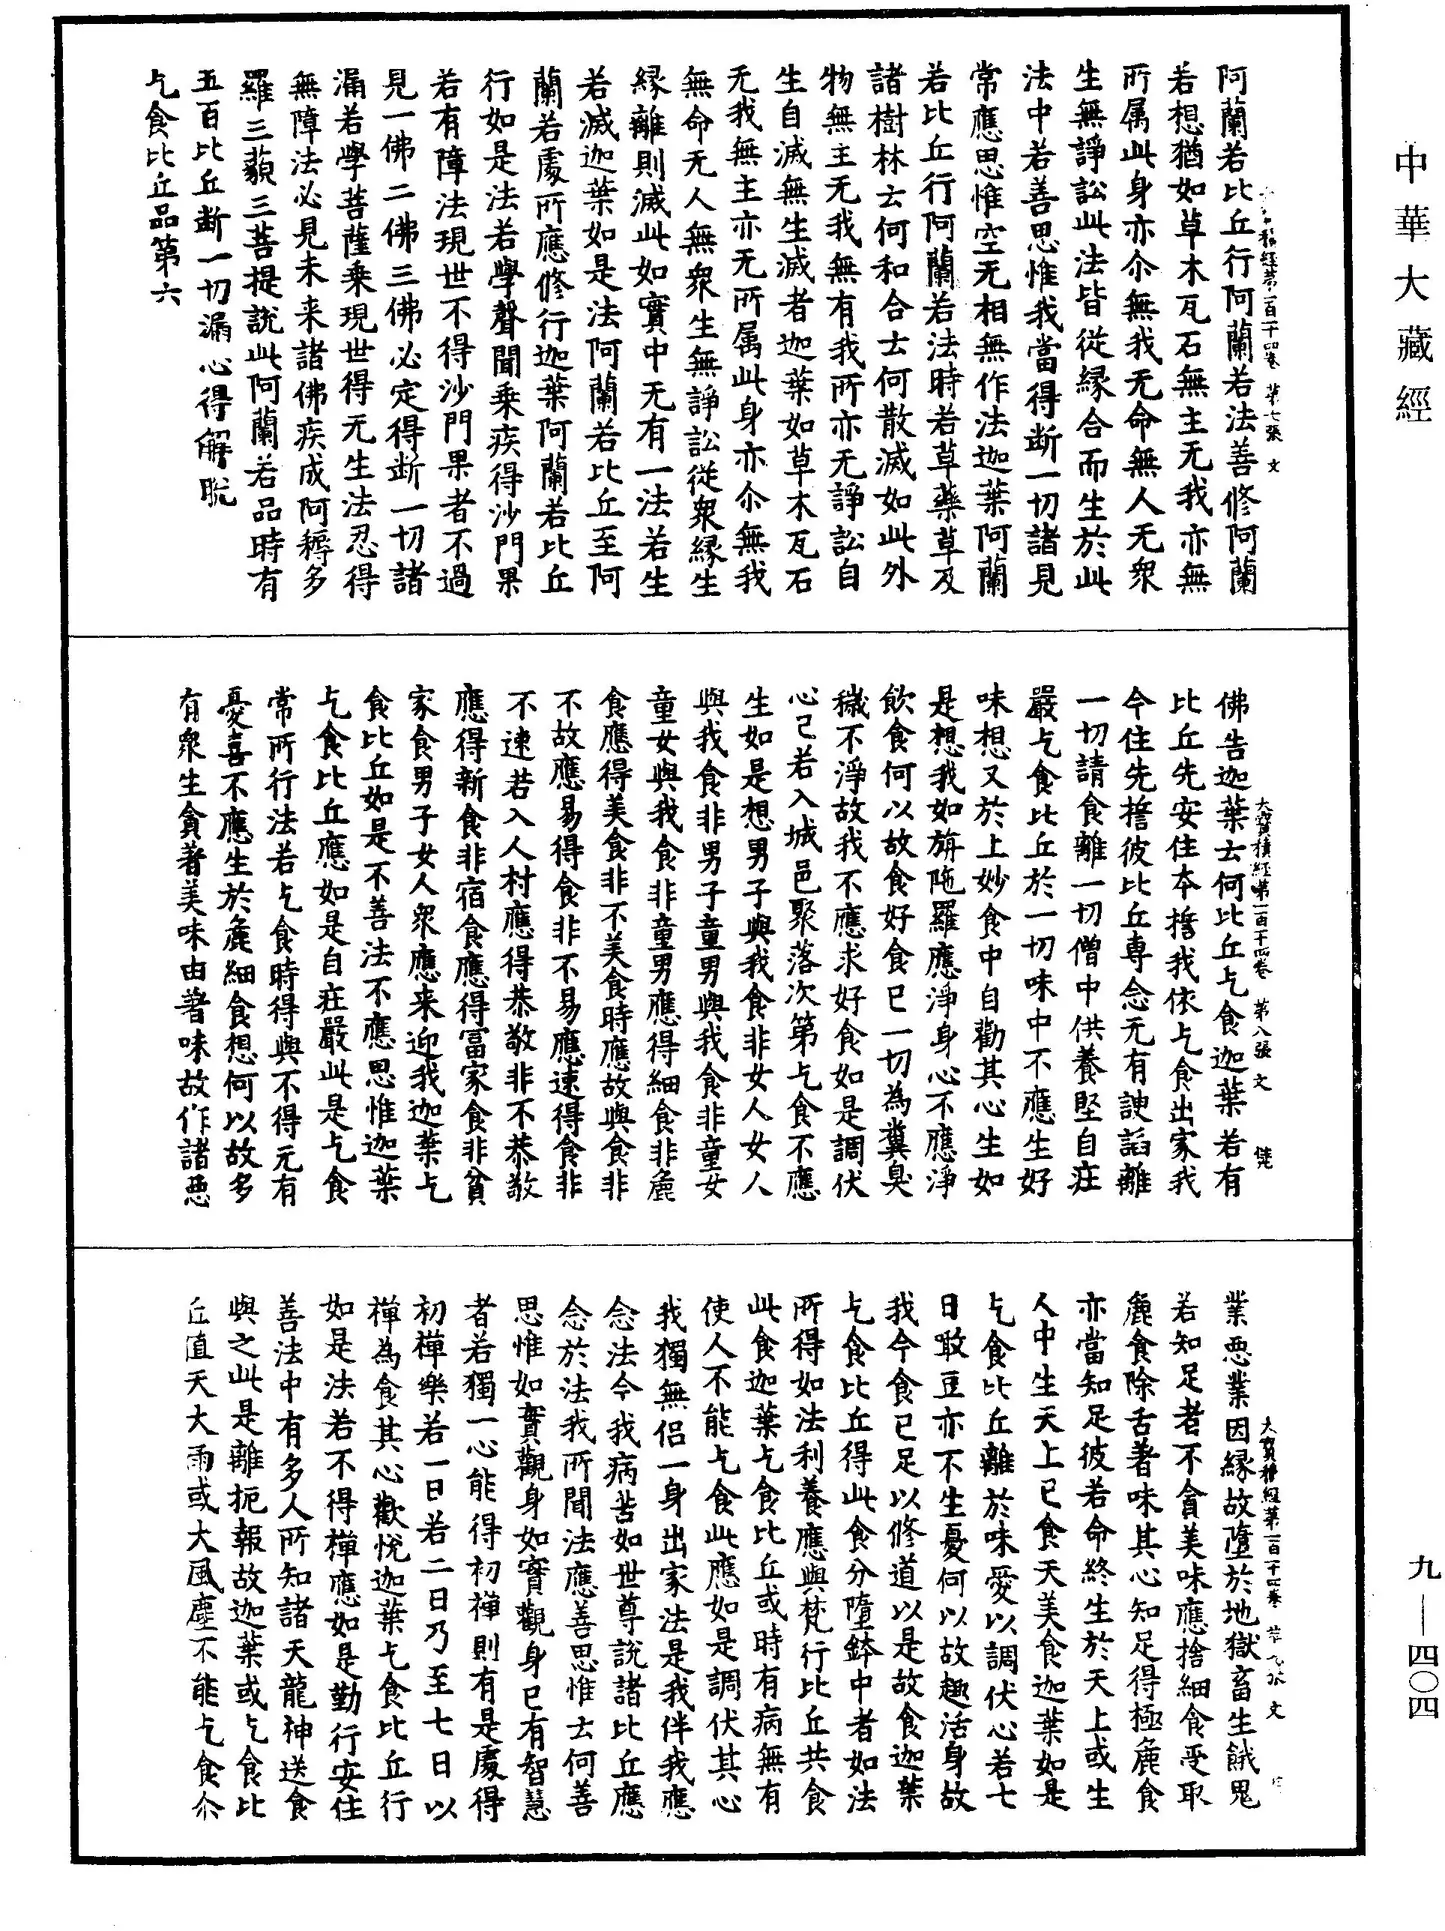 中華大藏經
阿蘭若比丘行阿蘭若法善修阿蘭
若想猶如草木瓦石無主无我亦無
所属此身亦尒無我无命無人无衆
生無諍訟此法皆從緣合而生於此
法中若善思惟我當得斷一切諸見
常應思惟空无相無作法迦葉阿蘭
若比丘行阿蘭若法時若草藥草及
諸樹林云何和合云何散滅如此外
物無主无我無有我所亦无諍訟自
生自滅無生滅者迦葉如草木瓦石
无我無主亦无所属此身亦尒無我
無命无人無衆生無諍訟從衆緣生
緣離則滅此如實中无有一法若生
若滅迦葉如是法阿蘭若比丘至阿
蘭若處所應修行迦葉阿蘭若比丘
行如是法若學聲聞乘疾得沙門果
若有障法現世不得沙門果者不過
見一佛二佛三佛必定得斷一切諸
漏若學菩薩乘現世得无生法忍得
無障法必見未来諸佛疾成阿耨多
羅三藐三菩提說此阿蘭若品時有
五百比丘斷一切漏心得解脫
乞食比丘品第六
大寶積經第一百十四卷 第七張 文
佛告迦葉云何比丘乞食迦葉若有
比丘先安住本擔我依乞食出家我
今住先擔彼比丘専念无有諛諂離
一切請食離一切僧中供養堅自庄
嚴乞食比丘於一切味中不應生好
味想又於上妙食中自勸其心生如
是想我如旃陁羅應淨身心不應淨
飲食何以故食好食已一切為糞臭
穢不淨故我不應求好食如是調伏
心已若入城邑聚落次第乞食不應
生如是想男子與我食非女人女人
與我食非男子童男與我食非童女
童女與我食非童男應得細食非麁
食應得美食非不美食時應故與食非
不故應易得食非不易應速得食非
不速若入人村應得恭敬非不恭敬
應得新食非宿食應得冨家食非貧
家食男子女人衆應来迎我迦葉乞
食比丘如是不善法不應思惟迦葉
乞食比丘應如是自莊嚴此是乞食
常所行法若乞食時得與不得无有
憂喜不應生於麁細食想何以故多
有衆生貪著美味由著味故作諸惡
大寶積經第一百十四卷 第八張 文
業惡業因緣故墮於地獄畜生餓鬼
若知足者不貪美味應捨細食受取
麁食除舌著味其心知足得極麁食
亦當知足彼若命終生於天上或生
人中生天上已食天美食迦葉如是
乞食比丘離於味愛以調伏心若七
日敢豆亦不生憂何以故趣活身故
我今食已足以修道以是故食迦葉
乞食比丘得此食分墮鉢中者如法
所得如法利養應與梵行比丘共食
此食迦葉乞食比丘或時有病無有
使人不能乞食此應如是調伏其心
我獨無侶一身出家法是我伴我應
念法今我病苦如世尊說諸比丘應
念於法我所聞法應善思惟云何善
思惟如實觀身如實觀身已有智慧
者若獨一心能得初禪則有是處得
初禪樂若一日若二日乃至七日以
禪為食其心歡悅迦葉乞食比丘行
如是法若不得禪應如是勤行安住
善法中有多人所知諸天龍神送食
與之此是離扼報故迦葉或乞食比
丘値天大雨或大風塵不能乞食尒
大寶積經第一百十四卷 文
九—四〇四